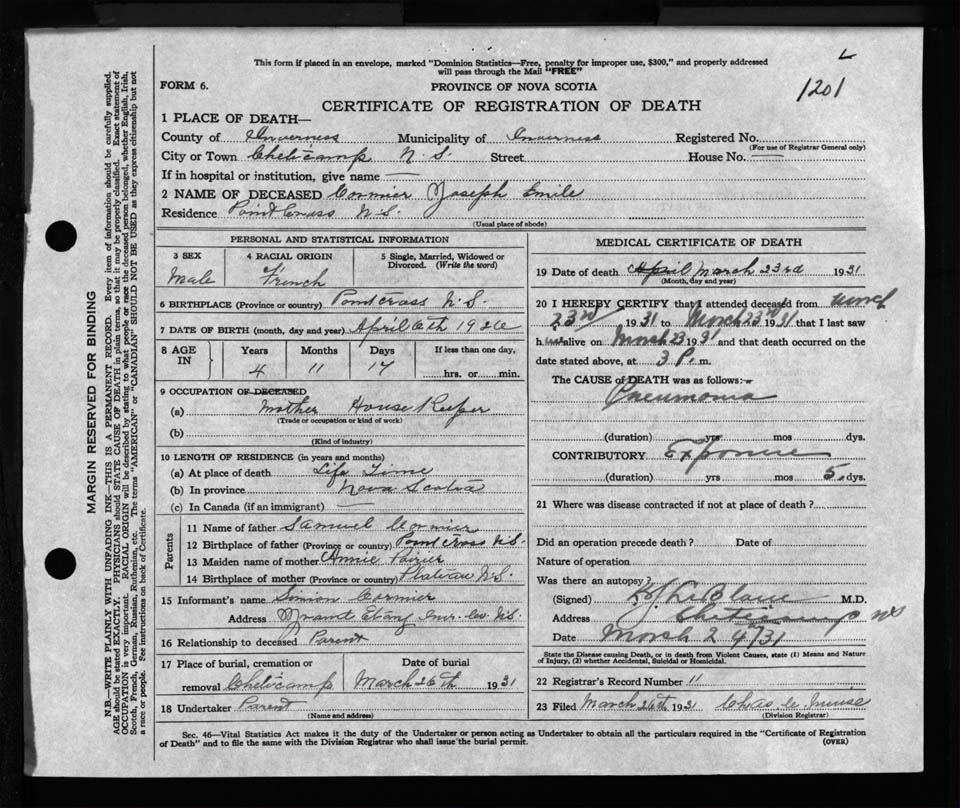 This form if placed in an envelope, marked "Dominion Statistics—Free, penalty for improper use, $300," and properly addressed
will pass through the Mail "FREE"
L
1201
FORM 6.
PROVINCE OF NOVA SCOTIA
CERTIFICATE OF REGISTRATION OF DEATH
1 PLACE OF DEATH—
County of Inverness Municipality of Inverness Registered No.
(For use of Registrar General only)
City or Town Cheticamp N.S. Street House No. —
If in hospital or institution, give name —
2 NAME OF DECEASED Cormier Joseph Emile
Residence Point Cross N.S.
(Usual place of abode)
PERSONAL AND STATISTICAL INFORMATION
3 SEX 4 RACIAL ORIGIN 5 Single, Married, Widowed or Divorced. (Write the word)
Male French
6 BIRTHPLACE (Province or country) Point cross N.S.
7 DATE OF BIRTH (month, day and year) April 6th 1926
8 AGE IN Years Months Days If less than one day,
4 11 17 hrs. or min.
9 OCCUPATION OF DECEASED
(a) Mother House Keeper
(Trade or occupation or kind of work)
(b)
(Kind of industry)
10 LENGTH OF RESIDENCE (in years and months)
(a) At place of death Life Time
(b) In province Nova Scotia
(c) In Canada (if an immigrant) —
Parents
11 Name of father Samuel Cormier
12 Birthplace of father (Province or country) Point cross N.S.
13 Maiden name of mother Annie
14 Birthplace of mother (Province or country) Plateau N.S.
15 Informant's name Simon Cormier
Address Grand Etang Inv. Co N.S.
16 Relationship to deceased Parent
17 Place of burial, cremation or removal Cheticamp Date of burial March 26th 1931
18 Undertaker Parent
(Name and address)
MEDICAL CERTIFICATE OF DEATH
19 Date of death April March 23rd 1931
(Month, day and year)
20 I HEREBY CERTIFY that I attended deceased from March
23rd 1931 to March 23rd 1931 that I last saw
h alive on March 23 1931 and that death occurred on the
date stated above, at 3 P. m.
The CAUSE OF DEATH was as follows:—
Pneumonia
(duration) yrs mos dys.
CONTRIBUTORY Exposure
(duration) yrs mos 5 dys.
21 Where was disease contracted if not at place of death?
Did an operation precede death? Date of
Nature of operation
Was there an autopsy?
(Signed) LeBlanc M.D.
Address Cheticamp NS
Date March 24/31
State the Disease causing Death, or in death from Violent Causes, state (1) Means and Nature
of Injury, (2) whether Accidental, Suicidal or Homicidal.
22 Registrar's Record Number 11
23 Filed March 26th 1931 Chas.
(Division Registrar)
Sec. 46—Vital Statistics Act makes it the duty of the Undertaker or person acting as Undertaker to obtain all the particulars required in the "Certificate of Registration
of Death" and to file the same with the Division Registrar who shall issue the burial permit.
(OVER)
MARGIN RESERVED FOR BINDING
N.B.—WRITE PLAINLY WITH UNFADING INK—THIS IS A PERMANENT RECORD. Every item of information should be carefully supplied.
AGE should be stated EXACTLY. PHYSICIANS should STATE CAUSE OF DEATH in plain terms, so that it may be properly classified. Exact statement of
OCCUPATION is very important. RACIAL ORIGIN will be described by stating to what people or race the deceased person belonged, whether English, Irish,
Scotch, French, German, Russian, Ruthenian, etc. The terms "AMERICAN" or "CANADIAN" SHOULD NOT BE USED as they express citizenship but not
a race or people. See instructions on back of Certificate.